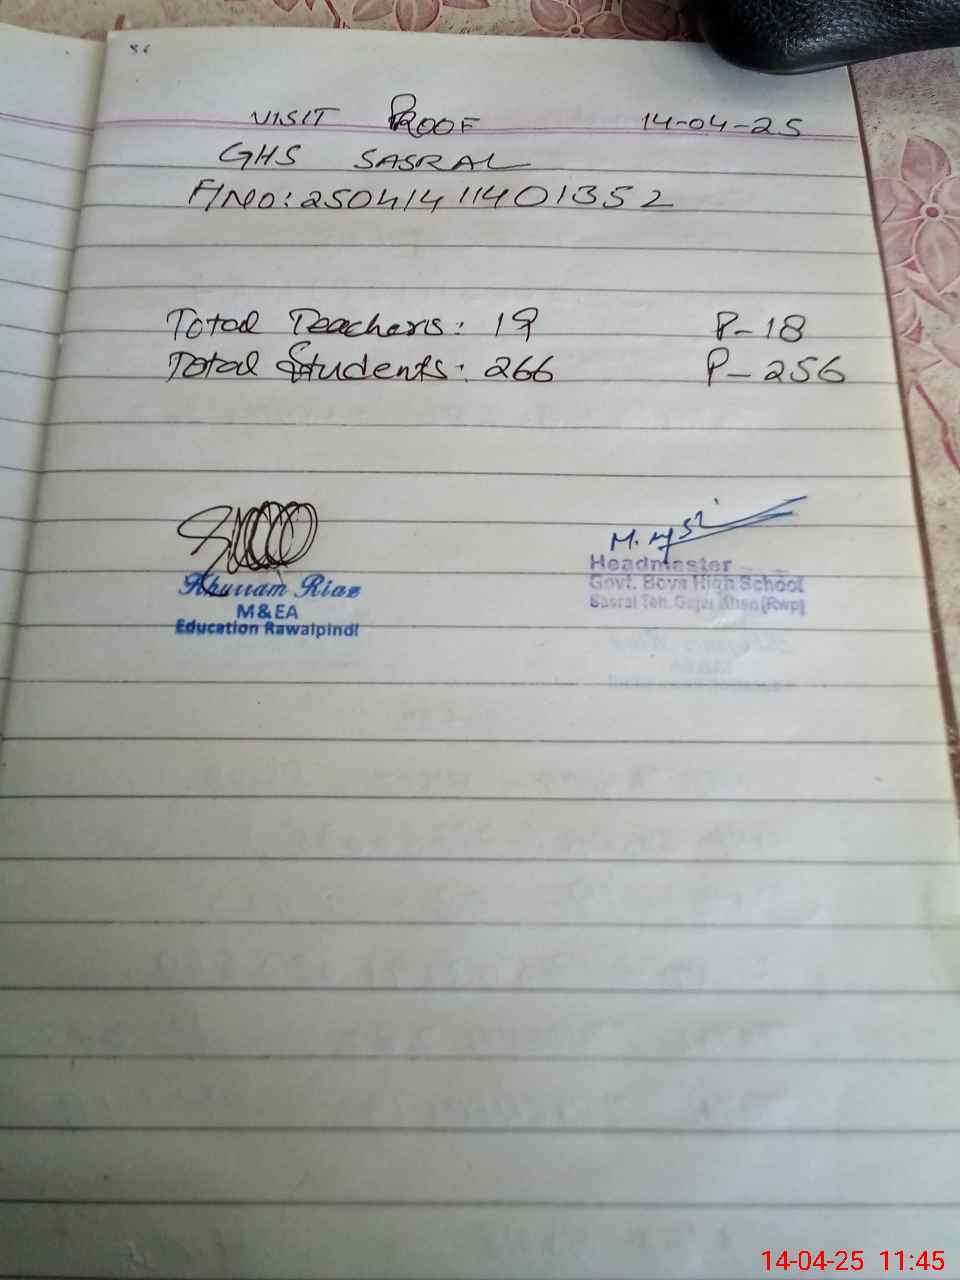 VISIT PROOF 14-04-25
GHS SASRAL
F/NO: 25041411401352
Total Teachers: 19 P-18
Total Students: 266 P-256
Khurram Riaz
M&EA
Education Rawalpindi
Headmaster
Govt. Boys High School
Sasral Teh. Gujar Khan (Rwp)
14-04-25 11:45